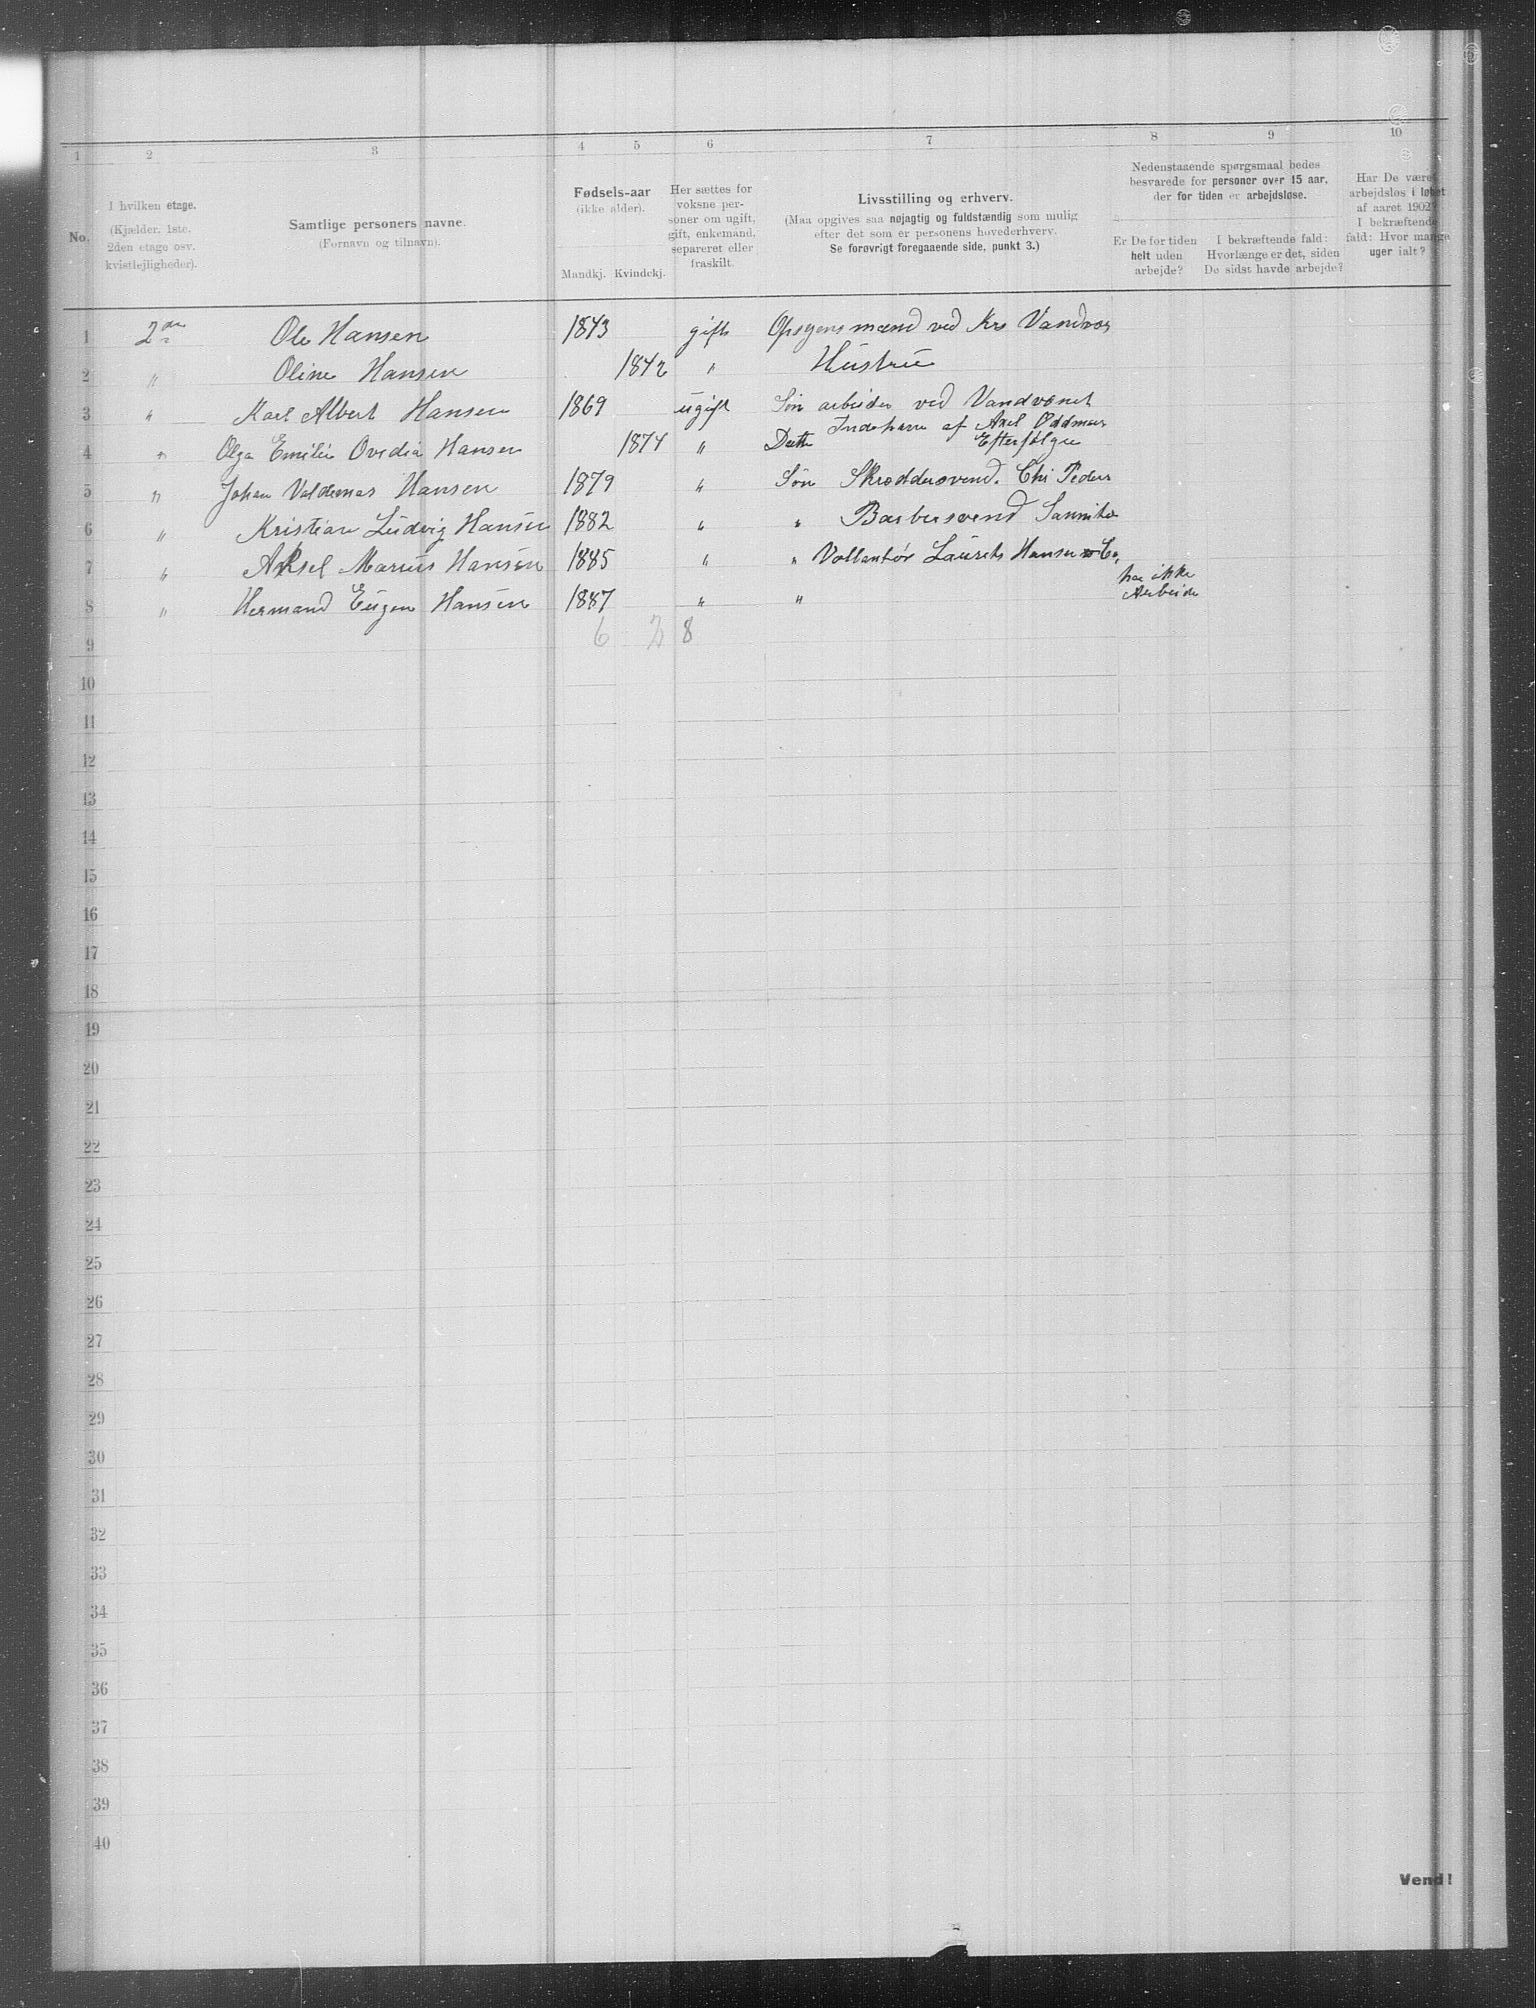 1 2 3 4 5 6 7 8 9 10
No.
I hvilken etage.
(Kjælder, 1ste,
2den etage osv.
kvistlejligheder).
Samtlige personers navne.
(Fornavn og tilnavn).
Fødsels-aar
(ikke alder).
Mandkj. Kvindekj.
Her sættes for
voksne per-
soner om ugift,
gift, enkemand,
separeret eller
fraskilt.
Livsstilling og erhverv.
(Maa opgives saa nøjagtig og fuldstændig som mulig
efter det som er personens hovederhverv.
Se forøvrigt foregaaende side, punkt 3.)
Nedenstaaende spørgsmaal bedes
besvarede for personer over 15 aar,
der for tiden er arbejdsløse.
Er De for tiden
helt uden
arbejde?
I bekræftende fald:
Hvorlænge er det, siden
De sidst havde arbejde?
Har De været
arbejdsløs i løbet
af aaret 1902?
I bekræftende
fald: Hvor mange
uger ialt?
1 2den Ole Hansen 1843 gift Opsynsmand ved Kra Vandvær
2 " Oline Hansen 1842 " Hustrue
3 " Karl Albert Hansen 1869 ugift Søn arbeider ved Vandvænet
4 " Olga Emilie Ovedia Hansen 1874 " Datte Indehaver af Axel
Efterfølger
5 " Johan Valdemar Hansen 1879 " Søn Skræddersvend. Chr Peders
6 " Kristian Ludvig Hansen 1882 " " Barbersvend
7 " Aksel Marius Hansen 1885 " " Vollantør Laurits Hansen & Co,
8 " Hermand Eugen Hansen 1887 " " har ikke
Arbeide
9 6 2 8
10
11
12
13
14
15
16
17
18
19
20
21
22
23
24
25
26
27
28
29
30
31
32
33
34
35
36
37
38
39
40
Vend!